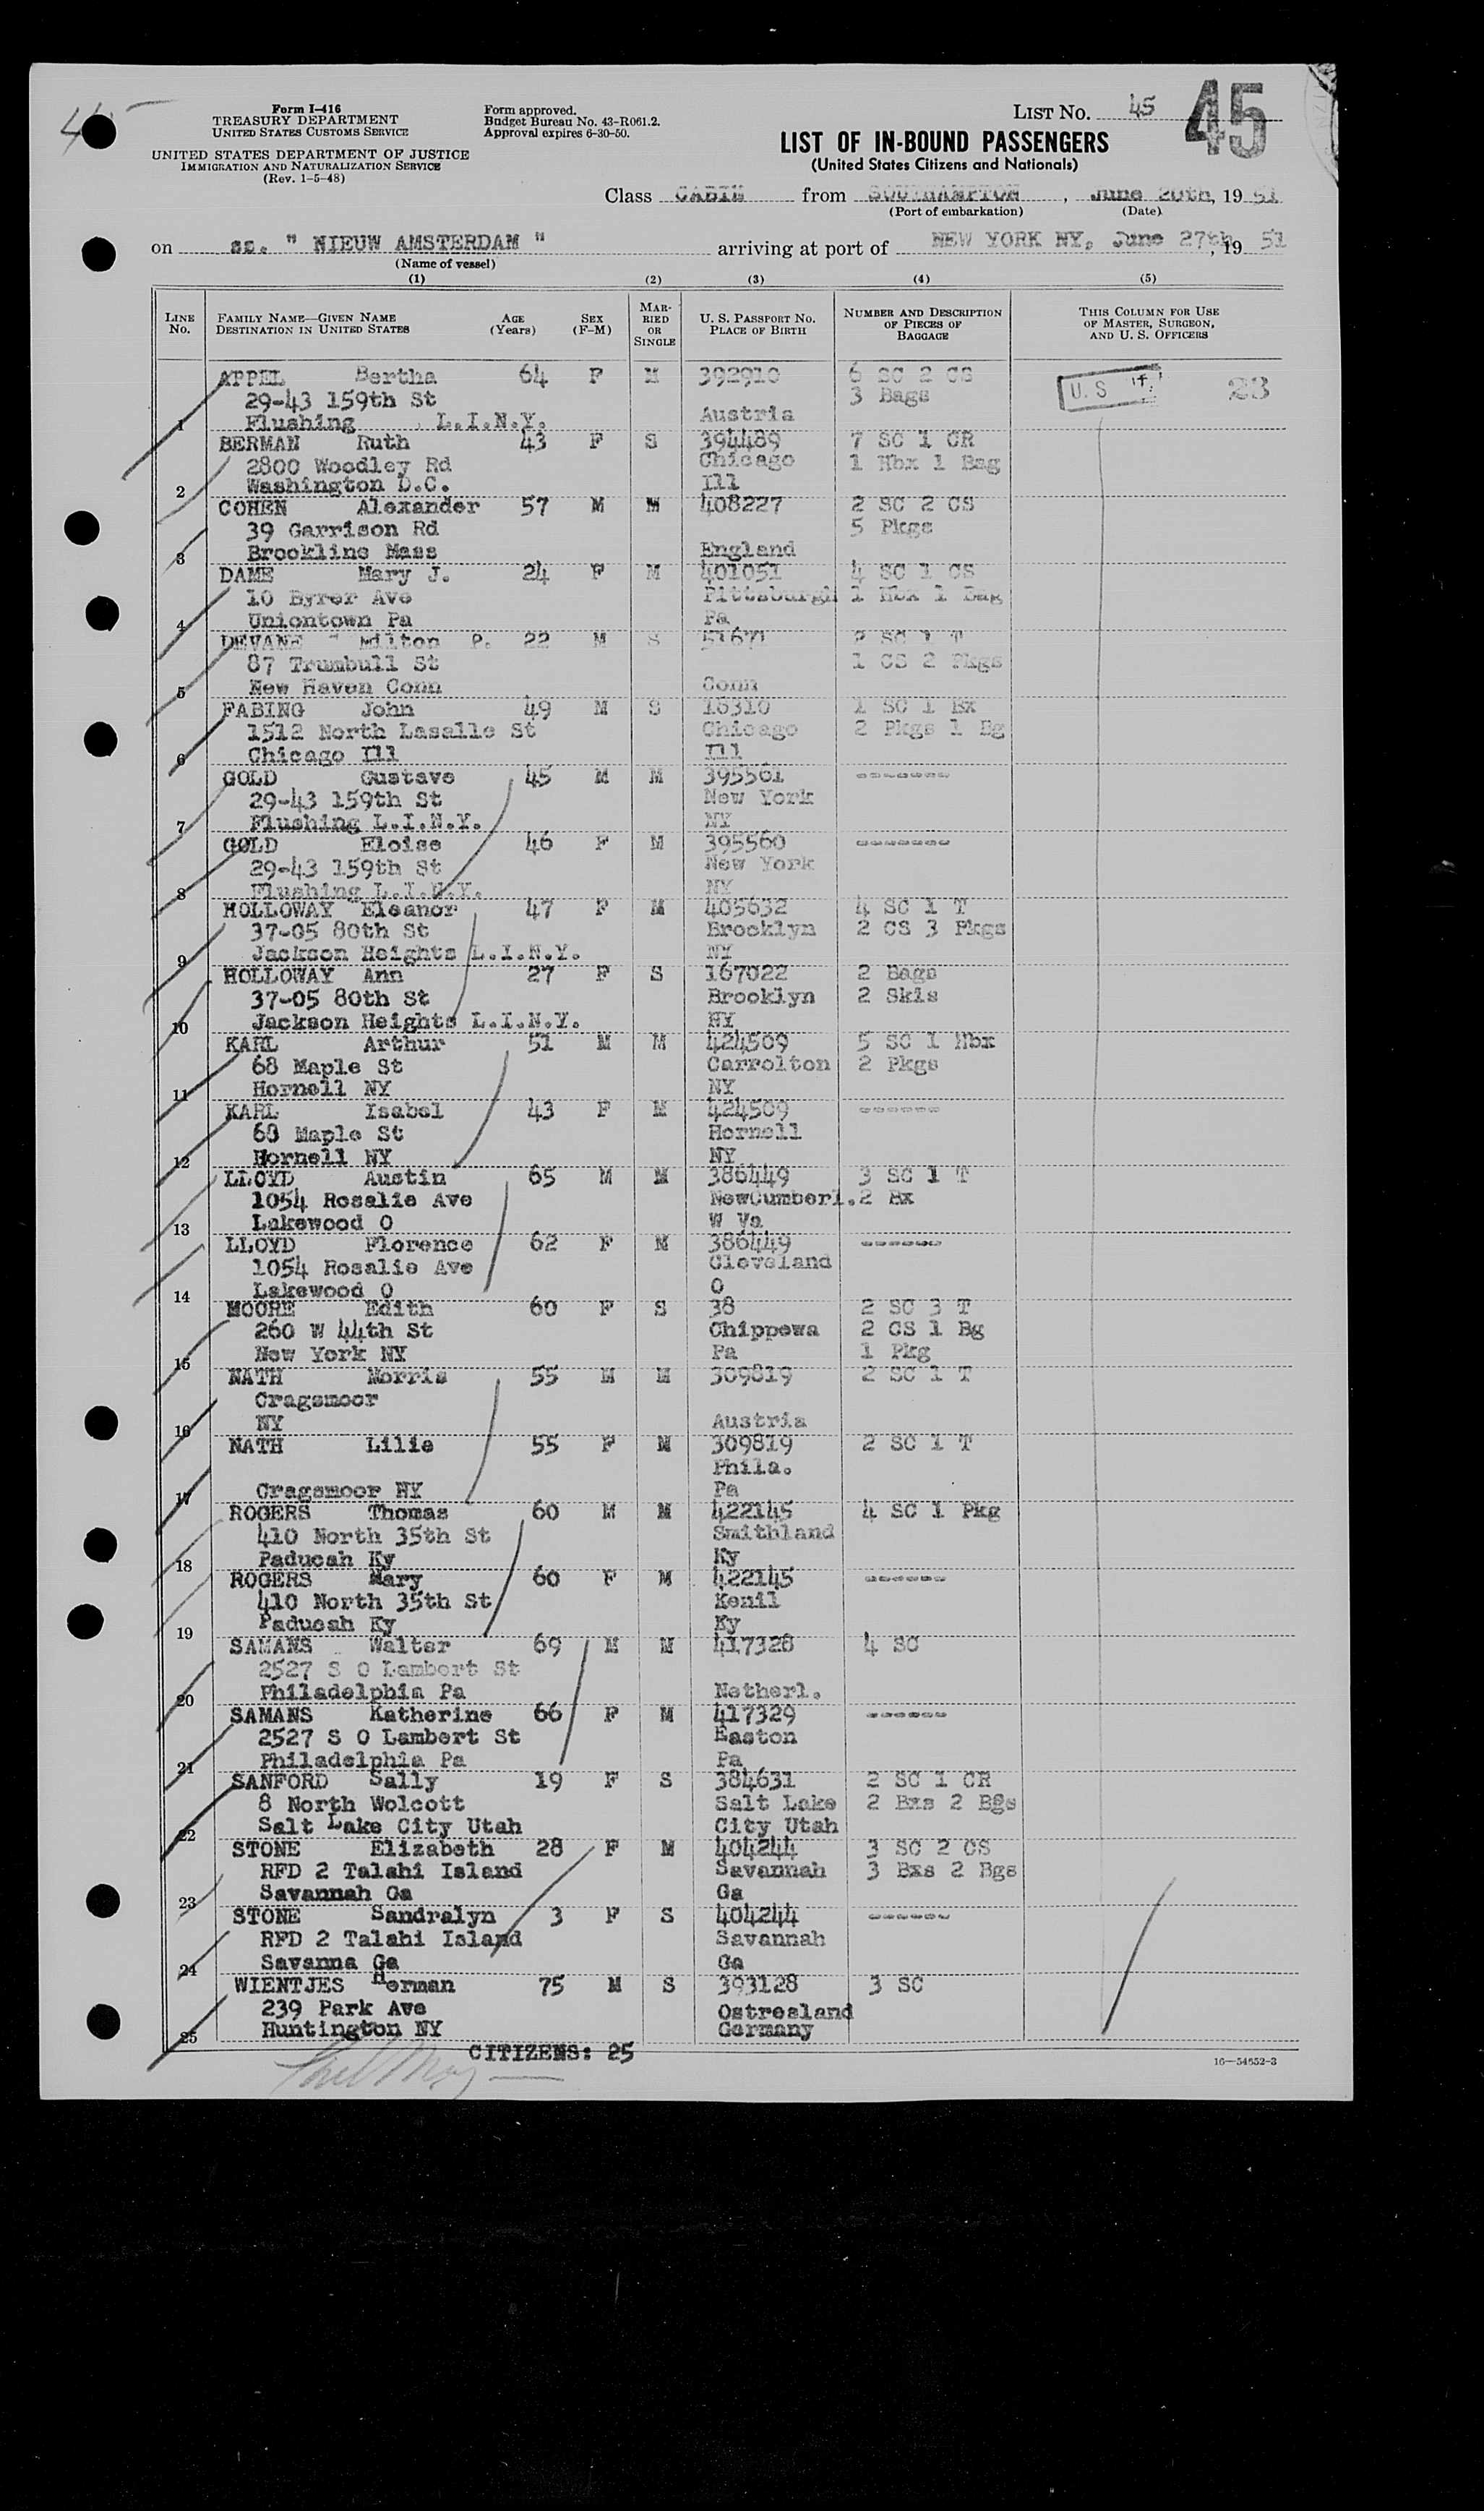 Form I-416
TREASURY DEPARTMENT
UNITED STATES CUSTOMS SERVICE
UNITED STATES DEPARTMENT OF JUSTICE
IMMIGRATION AND NATURALIZATION SERVICE
(Rev. 1-5-48)
Form approved.
Budget Bureau No. 43-R061.2.
Approval expires 6-30-50.
LIST NO. 45 45
LIST OF IN-BOUND PASSENGERS
(United States Citizens and Nationals)
Class CABIN from SOUTHAMPTON, June 20th, 1951
(Port of embarkation) (Date)
on ss. " NIEUW AMSTERDAM " arriving at port of NEW YORK NY, June 27th, 19 51
(Name of vessel)
(1) (2) (3) (4) (5)
LINE No. FAMILY NAME—GIVEN NAME DESTINATION IN UNITED STATES AGE (Years) SEX (F-M) MARRIED OR SINGLE U. S. PASSPORT NO. PLACE OF BIRTH NUMBER AND DESCRIPTION OF PIECES OF BAGGAGE THIS COLUMN FOR USE OF MASTER, SURGEON, AND U. S. OFFICERS
APPEL Bertha 64 F M 392910 6 SC 2 CS U. S 23
29-43 159th St 3 Bags
1 Flushing L.I.N.Y. Austria
BERMAN Ruth 43 F S 394489 7 SC 1 CR
2800 Woodley Rd Chicago 1 Hbx 1 Bag
2 Washington D.C. Ill
COHEN Alexander 57 M M 408227 2 SC 2 CS
39 Garrison Rd 5 Pkgs
3 Brookline Mass England
DAME Mary J. 24 F M 401051 4 SC 1 CS
10 Byrer Ave Pittsburgh 1 Hbx 1 Bag
4 Uniontown Pa Pa
DEVANE Milton P. 22 M S 51671 2 SC 1 T
87 Trumbull St 1 CS 2 Pkgs
5 New Haven Conn Conn
FABING John 49 M S 16310 1 SC 1 Bx
1512 North Lasalle St Chicago 2 Pkgs 1 Bg
6 Chicago Ill Ill
GOLD Gustave 45 M M 395561 -------
29-43 159th St New York
7 Flushing L.I.N.Y. NY
GOLD Eloise 46 F M 395560 -------
29-43 159th St New York
8 Flushing L.I.N.Y. NY
HOLLOWAY Eleanor 47 F M 405632 4 SC 1 T
37-05 80th St Brooklyn 2 CS 3 Pkgs
9 Jackson Heights L.I.N.Y. NY
HOLLOWAY Ann 27 F S 167022 2 Bags
37-05 80th St Brooklyn 2 Skis
10 Jackson Heights L.I.N.Y. NY
KARL Arthur 51 M M 424509 5 SC 1 Hbx
68 Maple St Carrolton 2 Pkgs
11 Hornell NY NY
KARL Isabel 43 F M 424509 ------
68 Maple St Hornell
12 Hornell NY NY
LLOYD Austin 65 M M 386449 3 SC 1 T
1054 Rosalie Ave NewCumberl. 2 Bx
13 Lakewood O W Va
LLOYD Florence 62 F M 386449 ------
1054 Rosalie Ave Cleveland
14 Lakewood O O
MOORE Edith 60 F S 38 2 SC 3 T
260 W 44th St Chippewa 2 CS 1 Bg
15 New York NY Pa 1 Pkg
NATH Morris 55 M M 309819 2 SC 1 T
Cragsmoor
16 NY Austria
NATH Lilie 55 F M 309819 2 SC 1 T
Phila.
17 Cragsmoor NY Pa
ROGERS Thomas 60 M M 422145 4 SC 1 Pkg
410 North 35th St Smithland
18 Paducah Ky Ky
ROGERS Mary 60 F M 422145 ------
410 North 35th St Kenil
19 Paducah Ky Ky
SAMANS Walter 69 M M 417328 4 SC
2527 S O Lambert St
20 Philadelphia Pa Netherl.
SAMANS Katherine 66 F M 417329 ------
2527 S O Lambert St Easton
21 Philadelphia Pa Pa
SANFORD Sally 19 F S 384631 2 SC 1 CR
8 North Wolcott Salt Lake 2 Bxs 2 Bgs
22 Salt Lake City Utah City Utah
STONE Elizabeth 28 F M 404244 3 SC 2 CS
RFD 2 Talahi Island Savannah 3 Bxs 2 Bgs
23 Savannah Ga Ga
STONE Sandralyn 3 F S 404244 ------
RFD 2 Talahi Island Savannah
24 Savanna Ga Ga
WIENTJES Herman 75 M S 393128 3 SC
239 Park Ave Ostreeland
25 Huntington NY Germany
CITIZENS: 25
16—54652-3